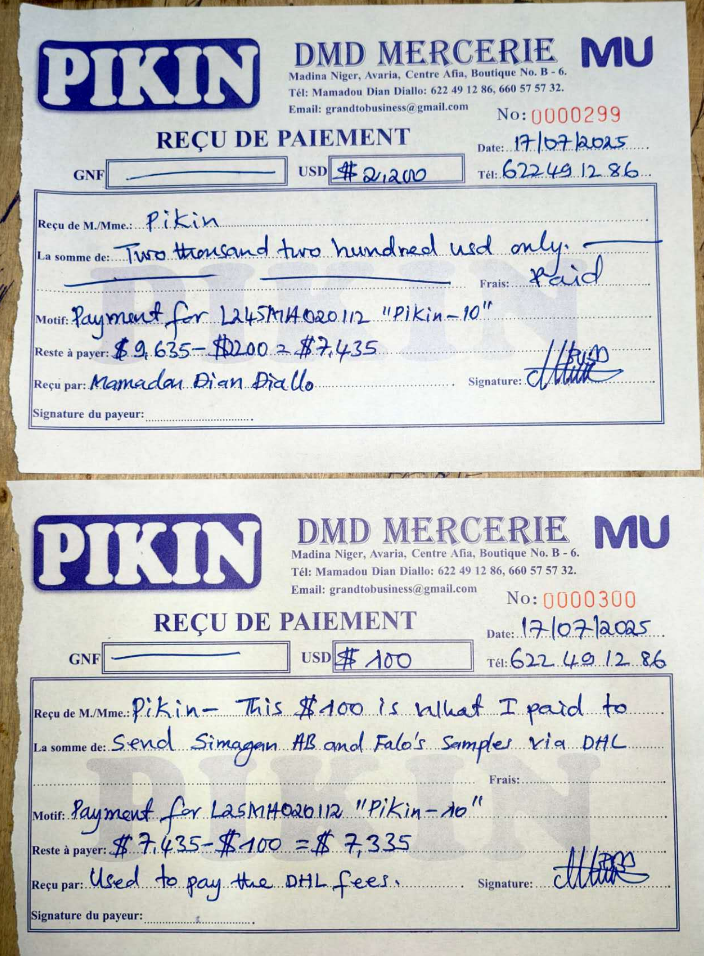 PIKIN
DMD MERCERIE MU
Madina Niger, Avaria, Centre Afia, Boutique No. B - 6.
Tél: Mamadou Dian Diallo: 622 49 12 86, 660 57 57 32.
Email: grandtobusiness@gmail.com
No: 0000299
REÇU DE PAIEMENT
Date: 17/07/2025
GNF USD $ 2,200 Tél: 622 49 12 86
Reçu de M./Mme.: Pikin
La somme de: Two thousand two hundred usd only.
Frais: Paid
Motif: Payment for L245MH020112 "Pikin-10"
Reste à payer: $ 9,635 - $2200 = $7,435
Reçu par: Mamadou Dian Diallo Signature:
Signature du payeur:
PIKIN
DMD MERCERIE MU
Madina Niger, Avaria, Centre Afia, Boutique No. B - 6.
Tél: Mamadou Dian Diallo: 622 49 12 86, 660 57 57 32.
Email: grandtobusiness@gmail.com
No: 0000300
REÇU DE PAIEMENT
Date: 17/07/2025
GNF USD $ 100 Tél: 622 49 12 86
Reçu de M./Mme.: Pikin- This $100 is what I paid to
La somme de: Send Simagan AB and Falo's Samples via DHL
Frais:
Motif: Payment for L25MH020112 "Pikin-10"
Reste à payer: $ 7,435 - $100 = $ 7,335
Reçu par: Used to pay the DHL fees. Signature:
Signature du payeur: